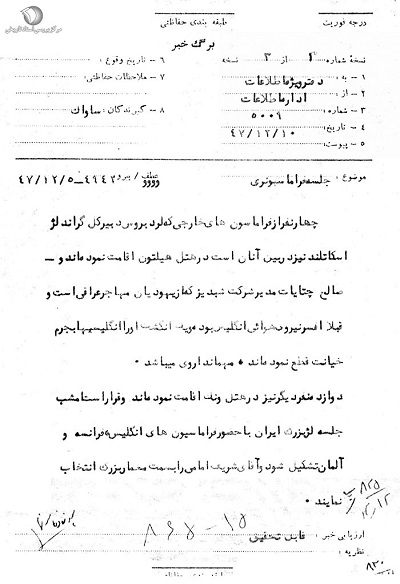 مرکز بررسی اسناد تاریخی
درجه فوریت
طبقه بندی حفاظتی
برگ خبر
نسخه شماره ۳ از ۳ نسخه
۱ - به : دفترویژه اطلاعات
۲ - از : اداره اطلاعات
۳ - شماره : ۵۰۰۹
۴ - تاریخ : ۴۷/۱۲/۱۰
۵ - پیوست :
۶ - تاریخ وقوع :
۷ - ملاحظات حفاظتی :
۸ - گیرندگان : ساواک
موضوع : جلسه فراماسیونری
عطف / پیرو ۴۹۴۲ - ۴۷/۱۲/۵
چهارنفرازفراماسون های خارجی که لرد بروس دبیرکل گراند لژ
اسکاتلند نیزدربین آنان است درهتل هیلتون اقامت نموده اند و -
صالح چتایات مدیرشرکت شهدیز که ازیهودیان مهاجرعراقی است و
قبلا افسرنیروی هوائی انگلیس بوده ویک انگشت اورا انگلیسیها بجرم
خیانت قطع نموده اند ، مهماندار وی میباشد .
دوازده نفردیگرنیز درهتل ونک اقامت نموده اند وقراراست امشب
جلسه لژبزرگ ایران با حضورفراماسیون های انگلیس و فرانسه و
آلمان تشکیل شود وآقای شریف امامی رابسمت معمار بزرگ انتخاب
نمایند .
ارزیابی خبر : قابل تحقیق
نظریه :
۸۲۵
۱۲/۱۲
۸۳۰
طبقه بندی حفاظتی